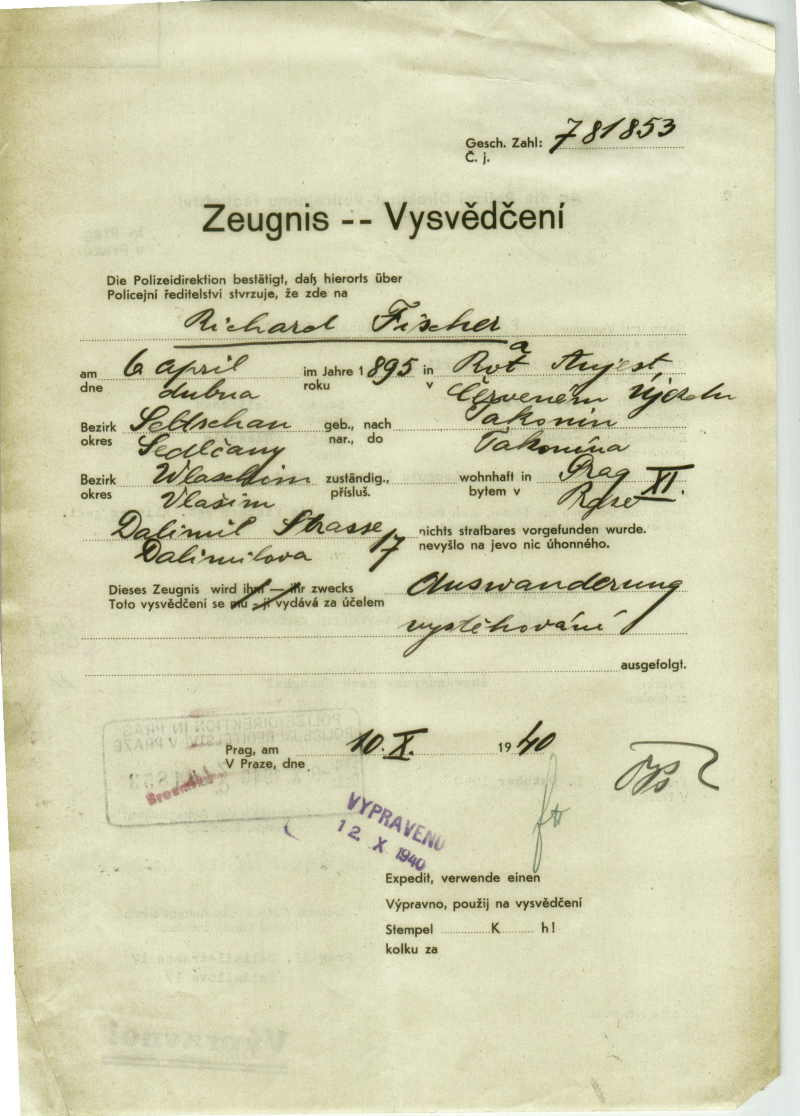 Gesch. Zahl: 781853
Č. j.
Zeugnis -- Vysvědčení
Die Polizeidirektion bestätigt, daß hierorts über
Policejní ředitelství stvrzuje, že zde na
Richard Fischer
am 6 april im Jahre 1895 in Rot Aujest
dne dubna roku v Červeném Újezdu
Bezirk Seltschan geb., nach Takonin
okres Sedlčany nar., do Takonína
Bezirk Wlaschim zuständig., wohnhaft in Prag XI.
okres Vlašim přísluš. bytem v
Dalimil Strasse 17 nichts strafbares vorgefunden wurde.
Dalimilova nevyšlo na jevo nic úhonného.
Dieses Zeugnis wird ihm — ihr zwecks Auswanderung
Toto vysvědčení se mu - jí vydává za účelem
vystěhování
ausgefolgt.
POLIZEIDIREKTION IN PRAG
POLICEJNÍ ŘEDITELSTVÍ V PRAZE
Prag, am 10. X. 1940
V Praze, dne
VYPRAVENO
12. X 1940
Expedit, verwende einen
Výpravno, použij na vysvědčení
Stempel K h!
kolku za
Výpravno!